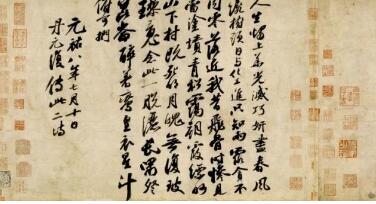 人生燭上華光滅巧妍盡春風
繞樹頭日與化工進只知雨露貪不
聞零落近我昔飛骨時慘見
當塗墳青松靄朝霞縹緲
山下村既死明月魄無復玻
璃魂念此一脫灑長嘯祭
崑崙醉著鸞皇衣星斗
俯可捫
元祐八年七月十日
丹元復傳此二詩